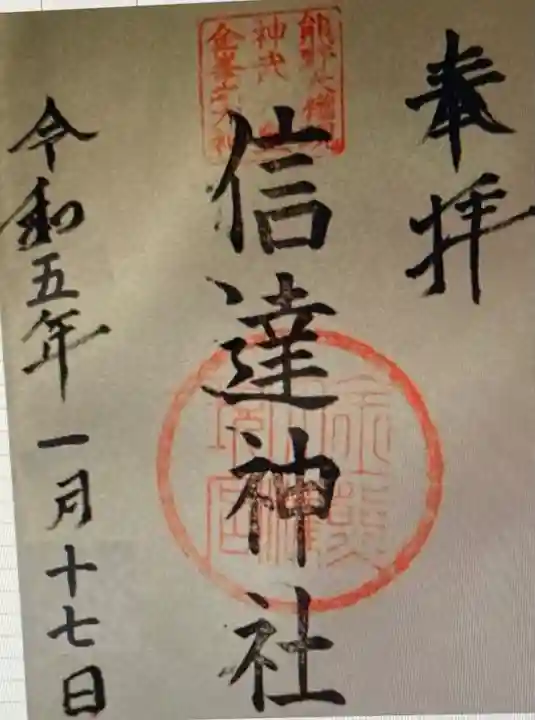 奉拝
熊野大権現
神武
金峯山大神
信達神社
令和五年一月十七日